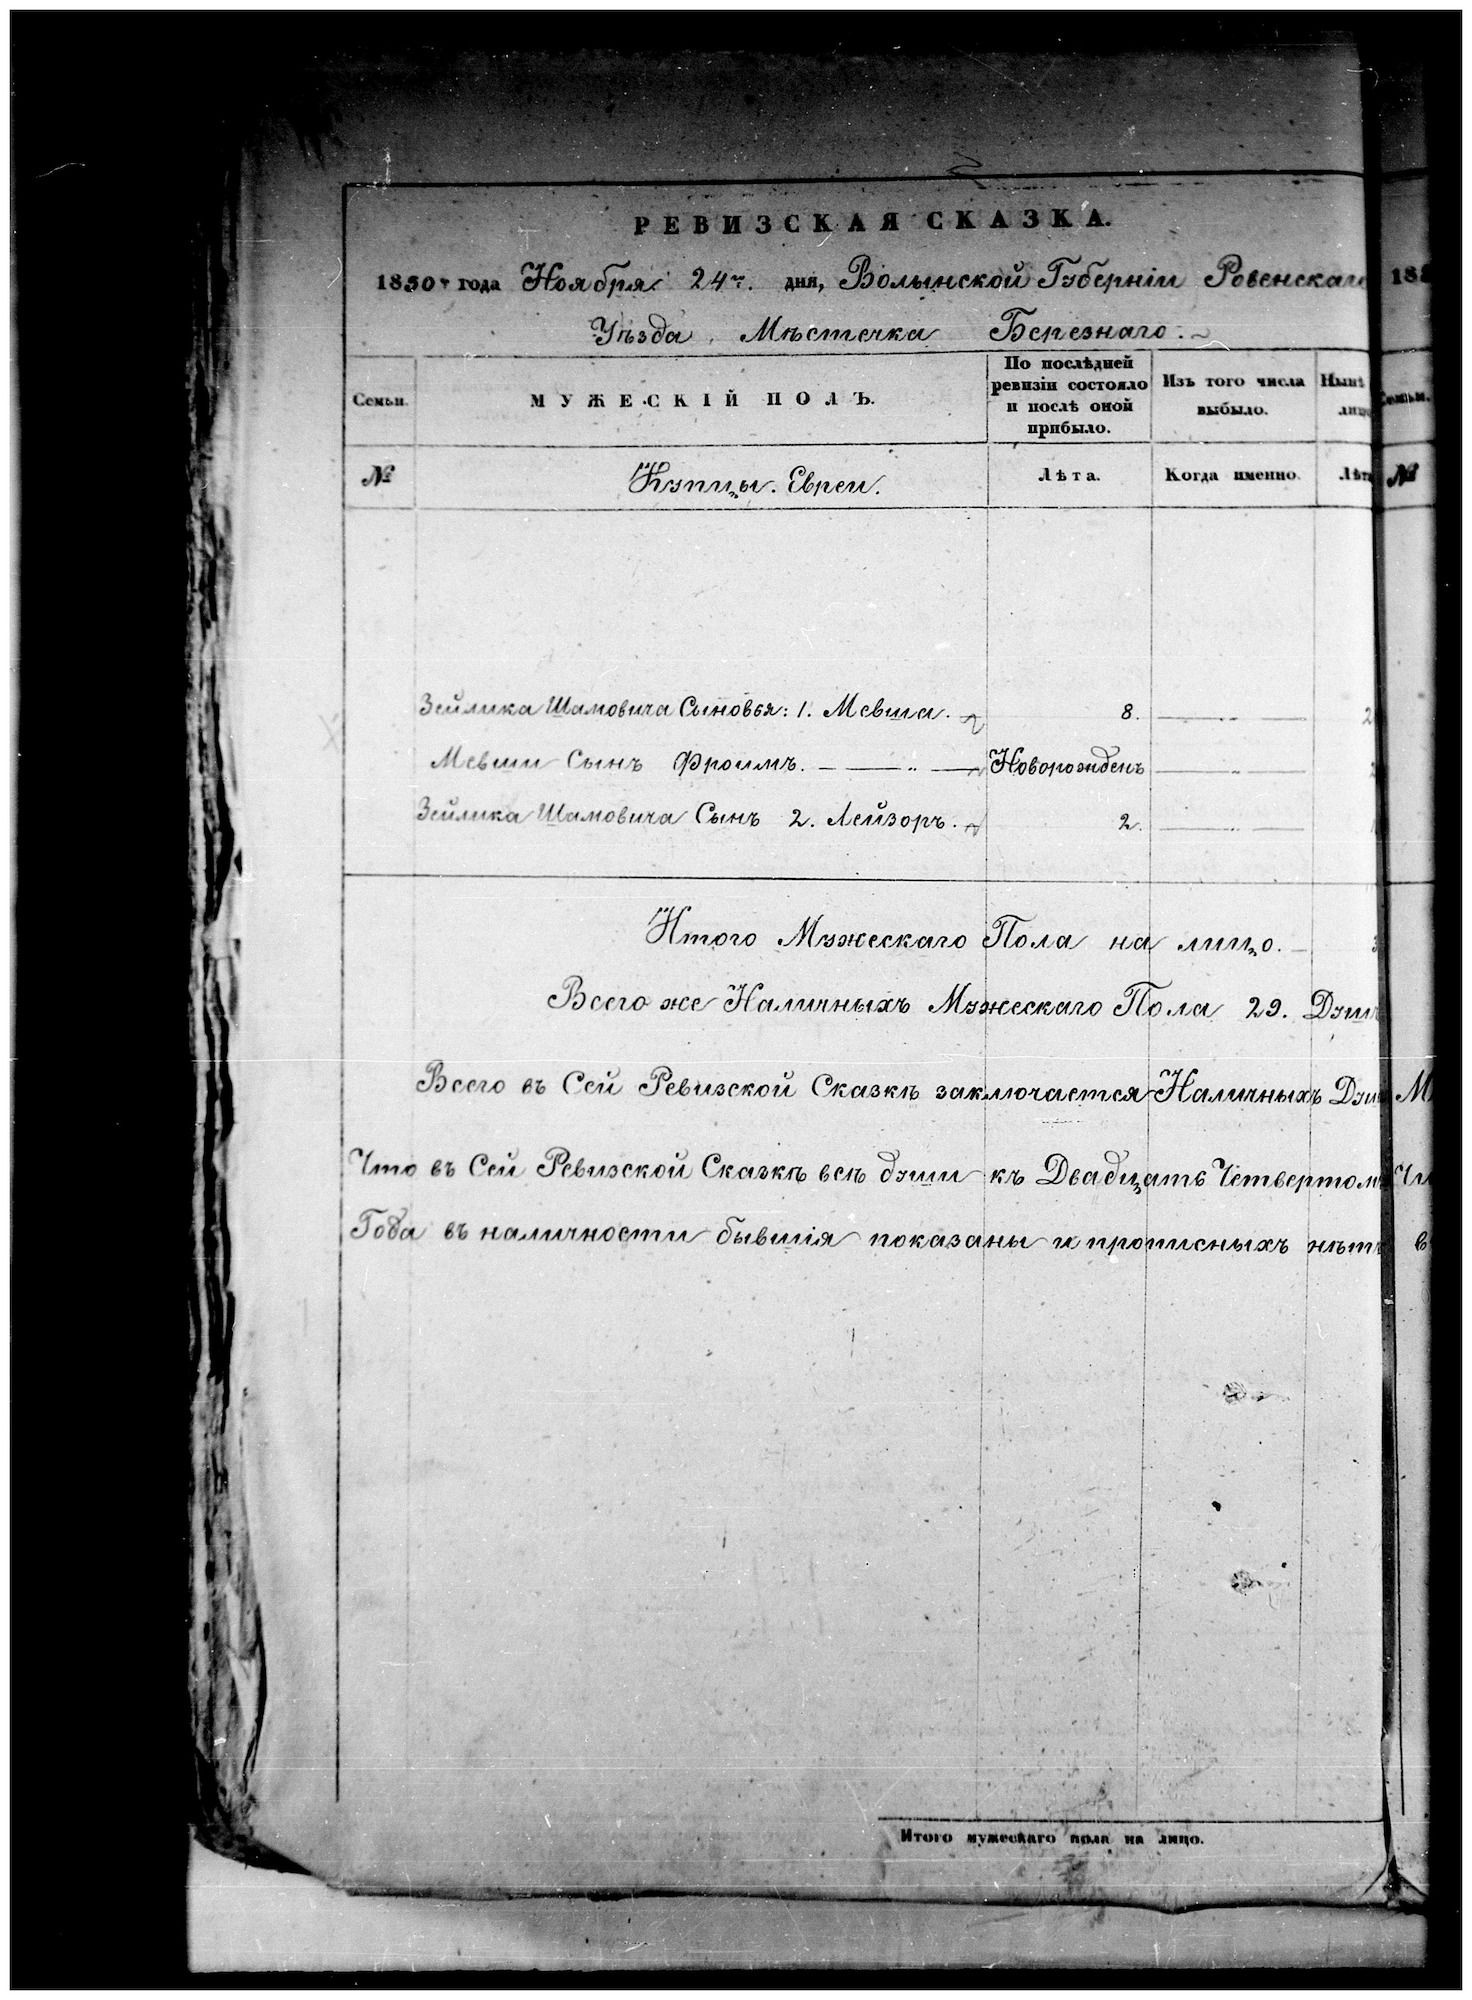 РЕВИЗСКАЯ СКАЗКА.
1850го года Ноября 24го. дня, Волынской Губерніи Ровенскаго
Уѣзда, Мѣстечка Березнаго.
Семьи.
МУЖЕСКІЙ ПОЛЪ.
По послѣдней ревизіи состояло и послѣ оной прибыло.
Изъ того числа выбыло.
Нынѣ лицо
№
Купцы. Евреи.
Лѣта.
Когда именно.
Лѣта
№
Зейлика Шамовича Сыновья: 1. Мевша. 8.
Мевши Сынъ Фроимъ. Новорожденъ
Зейлика Шамовича Сынъ 2. Лейзоръ. 2.
Итого Мужескаго Пола на лицо.
Всего же Наличныхъ Мужескаго Пола 29. Душъ
Всего въ Сей Ревизской Сказкѣ заключается Наличныхъ Душъ
Что въ Сей Ревизской Сказкѣ всѣ души къ Двадцать Четвертому
Года въ наличности бывшія показаны и прописныхъ нѣтъ
Итого мужескаго пола на лицо.